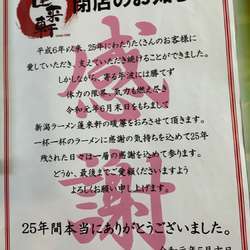 蓬来軒
閉店のお知らせ
平成6年以来、25年にわたりたくさんのお客様に
愛していただき、支えていただき続けることができました。
しかしながら、寄る年波には勝てず
体力の限界、気力も燃えつき
令和元年6月末日をもちまして
新潟ラーメン蓬来軒の暖簾をおろさせて頂きます。
一杯一杯のラーメンに感謝の気持ちを込めて25年
残された日々は一層の感謝を込めて参ります。
どうか、最後までご愛顧くださいますよう
よろしくお願い申し上げます。
感謝
25年間本当にありがとうございました。